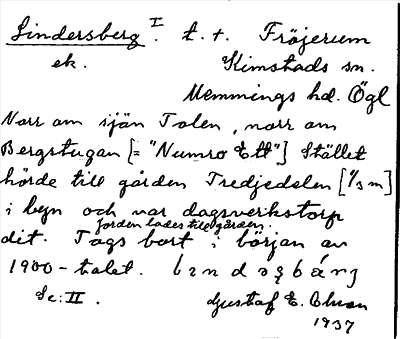 Lindersberg I. t. t. Fröjerum
ek. Kimstads sn.
Memmings hd. Ögl
Norr om sjön Tolen, norr om
Bergstugan [= "Numro Ett"] Stället
hörde till gården Tredjedelen [1/3 m]
i byn och var dagsverkstorp
jorden lades till gården.
dit. Togs bort i början av
1900-talet.
Se: II. Gustaf E. Olson
1937